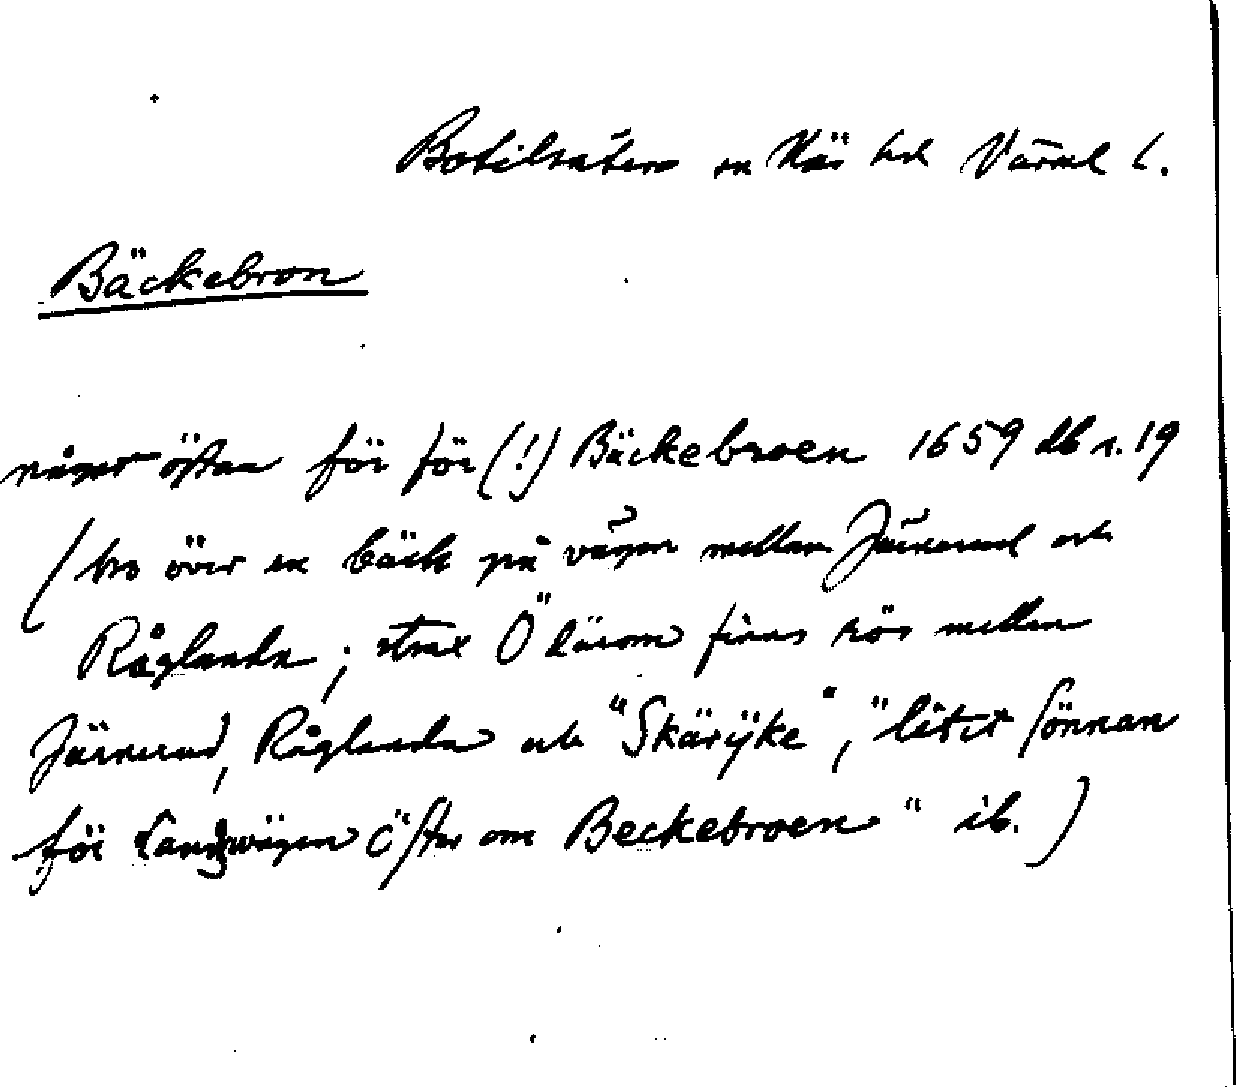 Botilsäters sn Näs hd Värml l.
Bäckebron
något östan för för (!) Bäckebroen 1659 db s. 19
(bro över en bäck på vägen mellan Järnerud och
Råglanda; strax Ö därom finns rös mellan
Järnerud, Råglanda och "Skärÿke", "litet Sönnan
för Landzwägen Öster om Beckebroen" ib.)